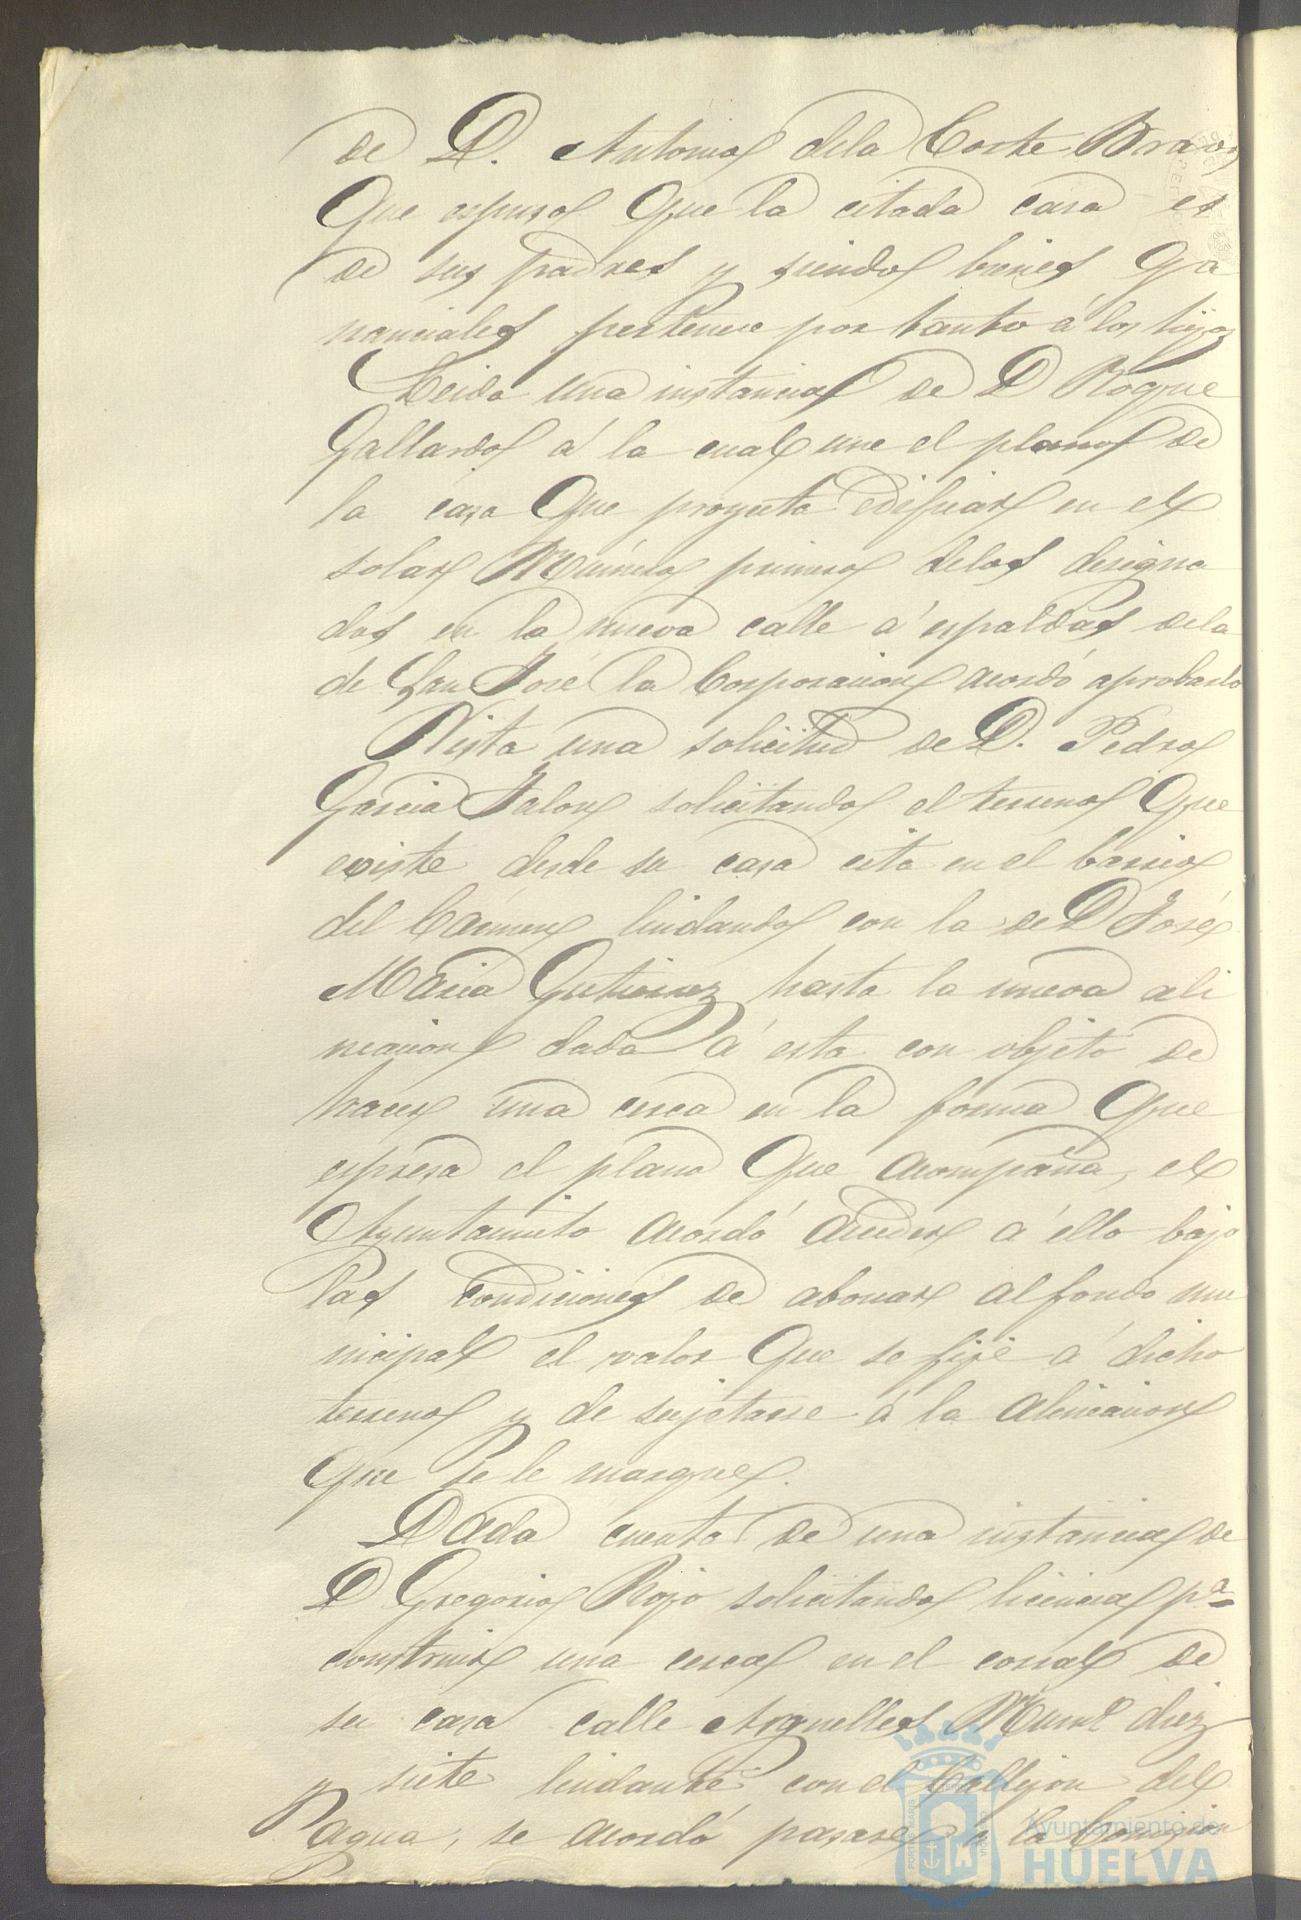 de D. Antonio dela Corte Bravo
Que espuso Que la citada casa es
de sus padres y siendo bienes Ga
nanciales pertenece por tanto á los hijos
Leida una instancia de D Roque
Gallardo á la cual une el plano de
la casa Que proyecta edificar en el
solar Número primero delos designa
dos en la nueva calle á espaldas dela
de San José la Corporacion acordó aprobarlo
Vista una solicitud de D. Pedro
Garcia Jalon solicitando el terreno Que
existe desde su casa cita en el barrio
del Cármen lindando con la de D José
Maria Gutierrez hasta la nueva ali
neacion dada á esta con objeto de
hacer una cerca en la forma Que
espresa el plano Que acompaña, el
Ayuntamiento acordó acceder á ello bajo
las condiciones de abonar al fondo mu
nicipal el valor Que se fije á dicho
terreno y de sujetarse á la alineacion
Que se le marque.
Dada cuenta de una instancia de
D Gregorio Rojo solicitando licencia pª
construir una cerca en el corral de
su casa calle Arguelles Numº diez
y siete lindante con el Callejon del
agua, se acordó pasase á la Comision
Ayuntamiento de
HUELVA